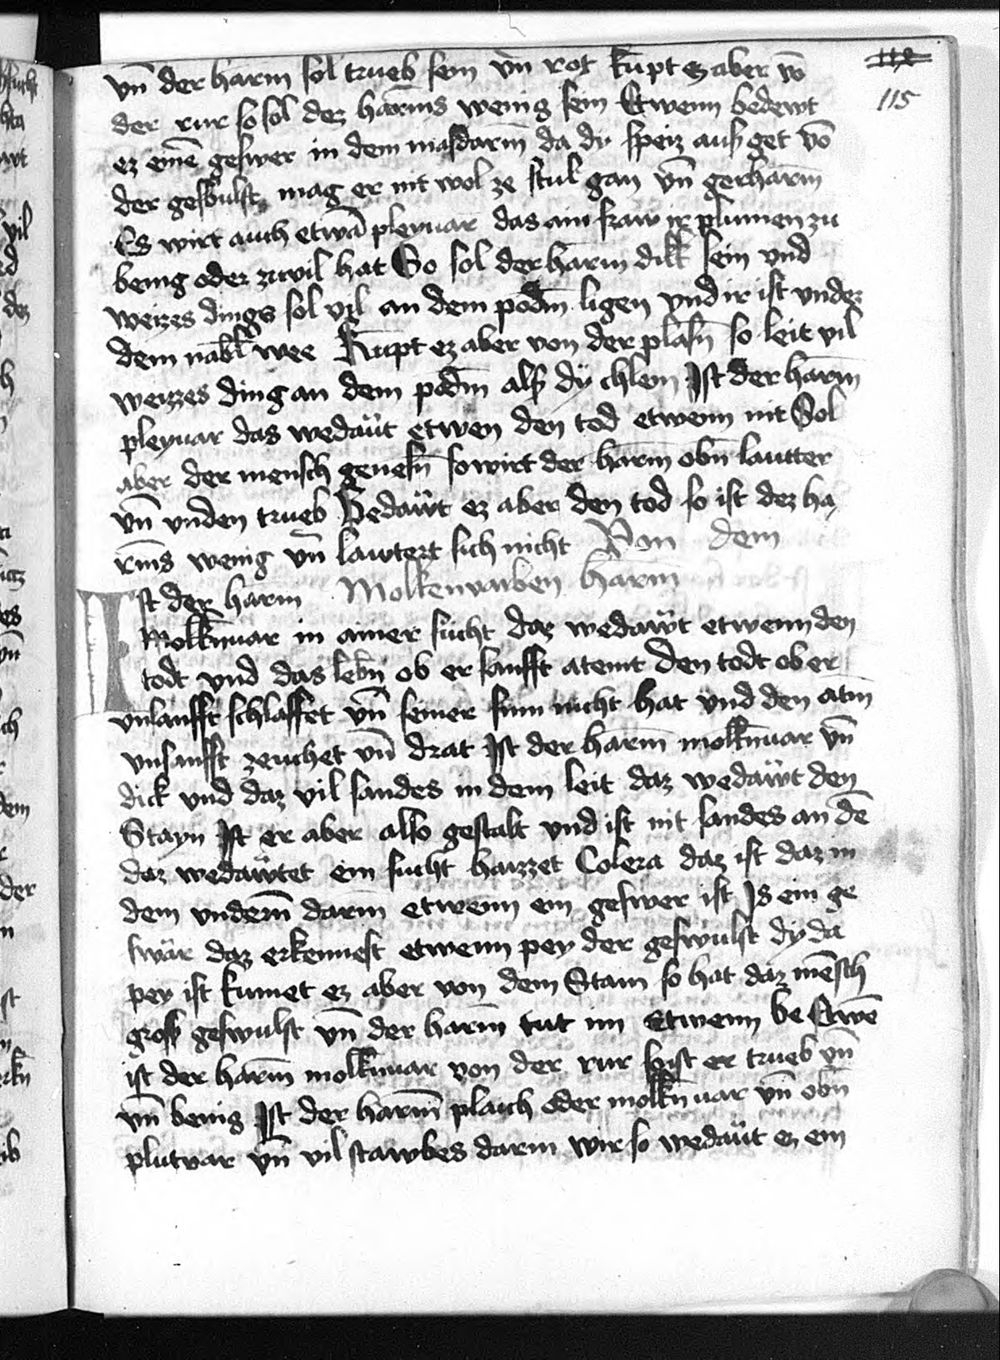 vn̄ der harm sol trueb sein vn̄ rot kūpt ez aber vō
115
der rur so sol dez harms wenig sein Etwenn bedewt
ez einē geswer in dem masdarm da dy speiz aus get vō
der geswulst mag er nit wol ze stul gan vn̄ geharm̄
Es wirt auch etwā pleyuar das ain fraw ir plumen zu
benig oder zuvil hat So sol der harm dikk sein vnd
weizes dings sol vil an dem podm̄ ligen vnd ir ist vnder
dem nabl wee Kūpt ez aber von der plasn̄ so leit vil
weizzes ding an dem podm̄ als dy chlem Ist der harm̄
pleyuar das wedaüt etwen den tod etwenn nit Sol
aber der mensch genesn̄ so wirt der harm̄ obn̄ lautter
vn̄ vnden trueb Bedaẅt ez aber den tod so ist dez ha
rms wenig vn̄ lawtert sich nicht Von dem
Ist der harm Molkenvarben harm̄
Molkn̄uar in ainer sucht daz wedaẅt etwenn den
todt vnd das lebn̄ ob er sanfft atemt Den todt ob er
vnsanfft schlaffet vn̄ seiner sinn nicht hat vnd den atm̄
vnsanfft zeuchet vn̄ drat Ist der harm̄ molkn̄uar vn̄
dick vnd daz vil sandes in dem leit daz wedaẅt den
Stayn Ist er aber also gestalt vnd ist nit sandes an dē
daz wedaẅtet ein sucht haizzet Colera daz ist daz in
dem vnderm̄ darm̄ etwenn ein geswer ist Is ein ge
swär daz erkennest etwenn pey der geswulst dy da
pey ist kumet ez aber von dem Stain so hat daz mēsch
gross geswulst vn̄ der harm̄ tut im Etwenn we Etwē
ist der harm̄ molkn̄uar von der rur so ist er trueb vn̄
vn̄ benig Ist der harm̄ plaich oder molkn̄uar vn̄ obn̄
plutvar vn̄ vil stawbes darin wir so wedaüt ez ein